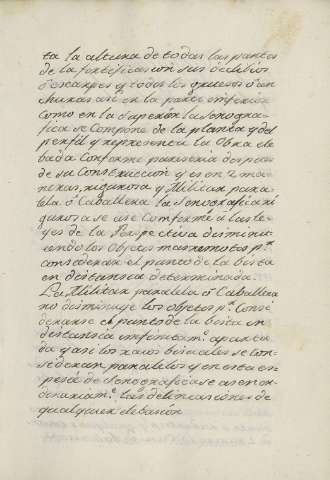 ta la altura de todas las partes
de la fortificacion sus declibios
o escarpes y todos los gruesos o an
churas asi en la parte inferior
como en la superior la senogra
fica se compone de la planta y del
perfil y representa la obra ele
bada conforme pareseria despues
de su construccion y es en 2 ma
neras, rigurosa y Militar para
lela ó Caballera la senografia ri
gurosa se ase comforme a las le
yes de la Perspectiva disminu
iendo los objetos mas remotos pr.
considerar el punto de la bista
en distansia determinada
La Militar paralela ó Caballera
no disminuye los objetos pr. Consi
derarse el punto de la bista en
distansia infinitamte. aparta
da y asi los raios bisuales se con
sideran paralelos y en esta es
pesie de senografia se asen or
dinariamte. las delineasiones de
qualquier edificio